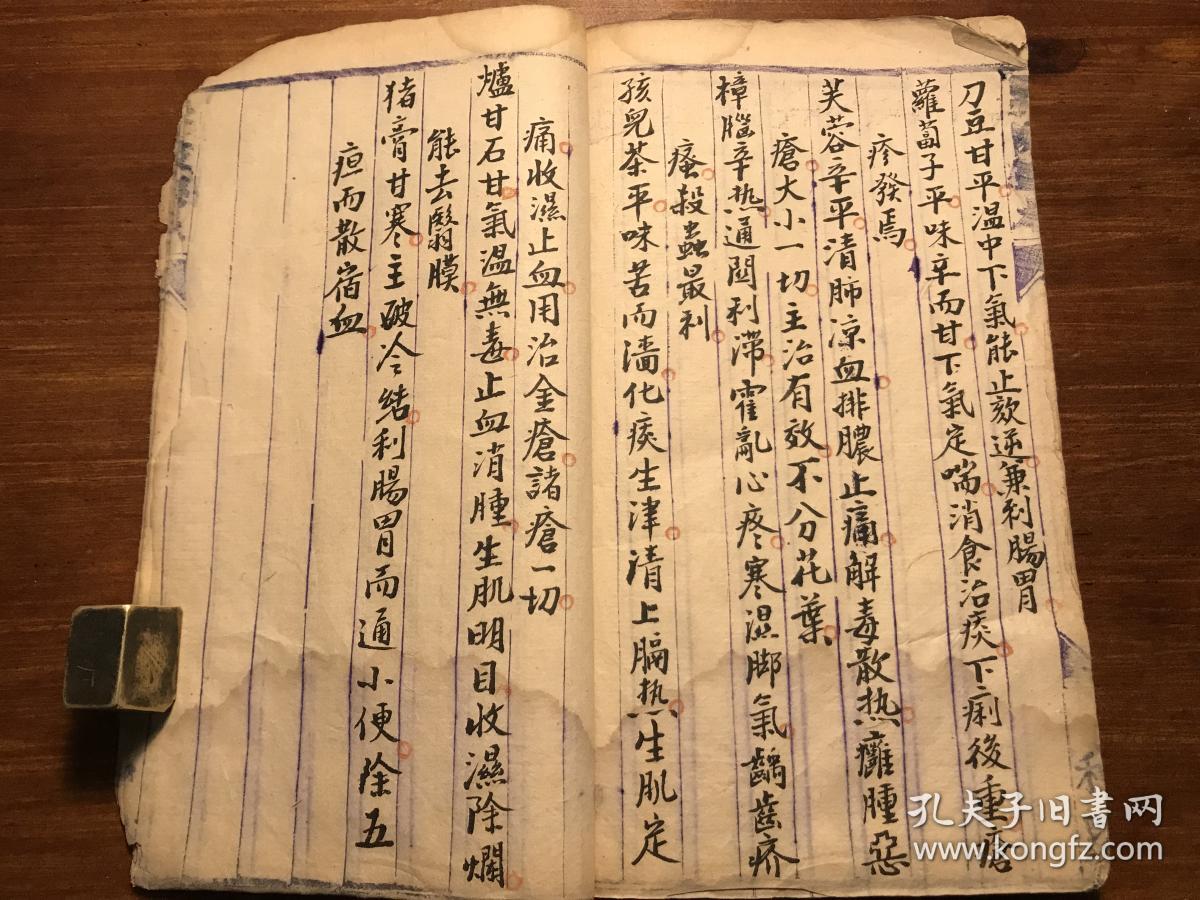 刀豆甘平温中下氣能止欬逆兼利腸胃
蘿蔔子平味辛而甘下氣定喘消食治痰下痢後重瘡
疹發焉
芙蓉辛平清肺凉血排膿止痛解毒散热癰腫惡
瘡大小一切主治有效不分花葉
樟腦辛热通關利滯霍亂心疼寒濕脚氣齲齒疥
瘙殺蟲最利
孩兒茶平味苦而濇化痰生津清上膈热生肌定
痛收濕止血用治金瘡諸瘡一切
爐甘石甘氣温無毒止血消腫生肌明目收濕除爛
能去翳膜
猪膏甘寒主破冷結利腸胃而通小便除五
疸而散宿血
孔夫子旧書网
www.kongfz.com